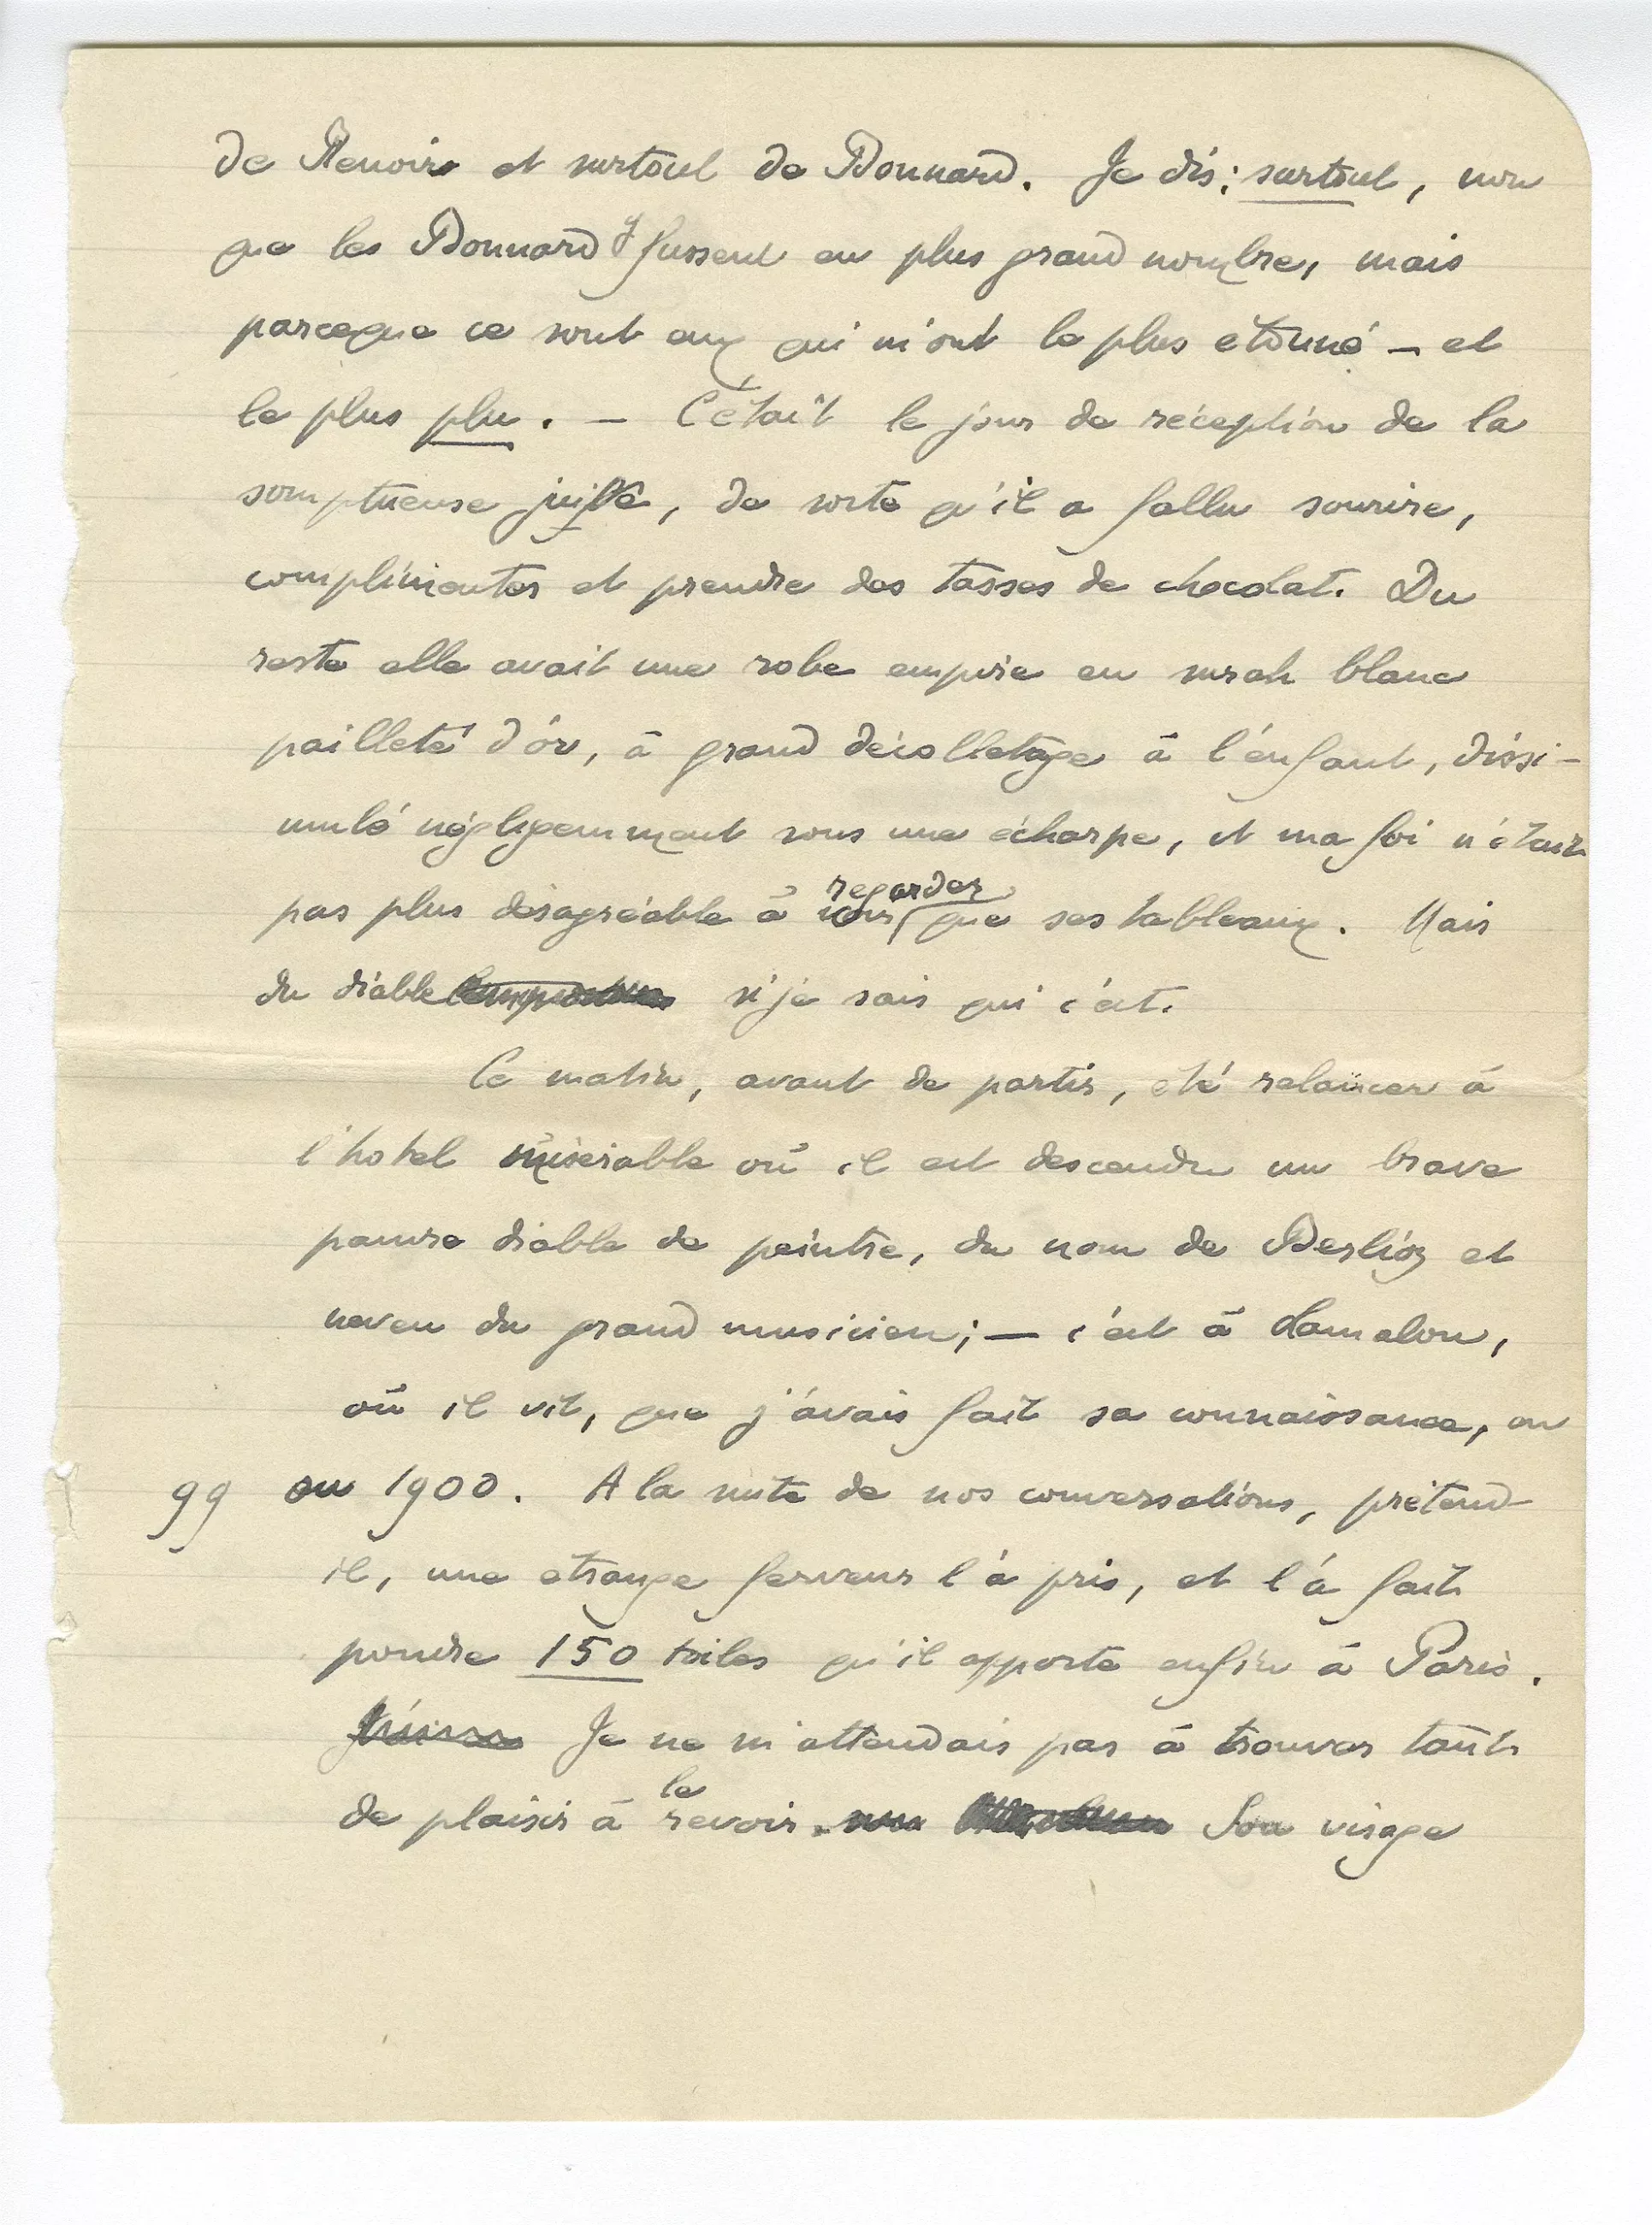 de Renoir et surtout de Bonnard. Je dis: surtout, non
que les Bonnard y fussent en plus grand nombre, mais
parceque ce sont eux qui m'ont le plus étonné – et
le plus plu. – C'était le jour de réception de la
somptueuse juive, de sorte qu'il a fallu sourire,
complimenter et prendre des tasses de chocolat. Du
reste elle avait une robe empire en surah blanc
pailleté d'or, à grand décolletage à l'enfant, dissi-
mulé négligemment sous une écharpe, et ma foi n'était
regarder
pas plus désagréable à voir que ses tableaux. Mais
du diable si je sais qui c'est.
Ce matin, avant de partir, été relancer à
l'hotel misérable où il est descendu un brave
pauvre diable de peintre, du nom de Berlioz et
neveu du grand musicien; – c'est à Lamalou,
où il vit, que j'avais fait sa connaissance, en
99 ou 1900. A la suite de nos conversations, prétend-
il, une étrange ferveur l'a pris, et l'a fait
pondre 150 toiles qu'il apporte enfin à Paris.
Je ne m'attendais pas à trouver tant
le
de plaisir à revoir. Son visage